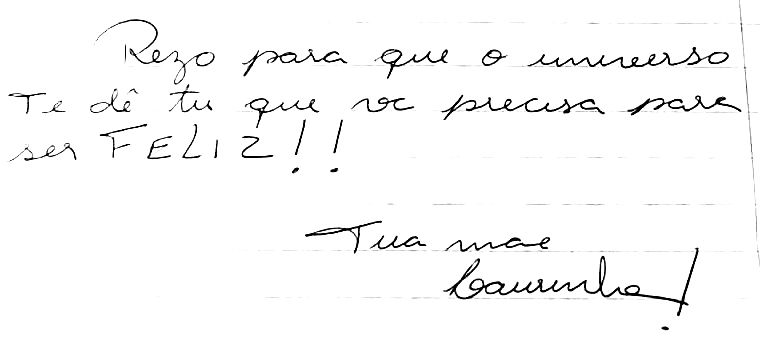 Rezo para que o universo
Te dê tu que vc precisa para
ser FELIZ!!
Tua mae
Laurinha!